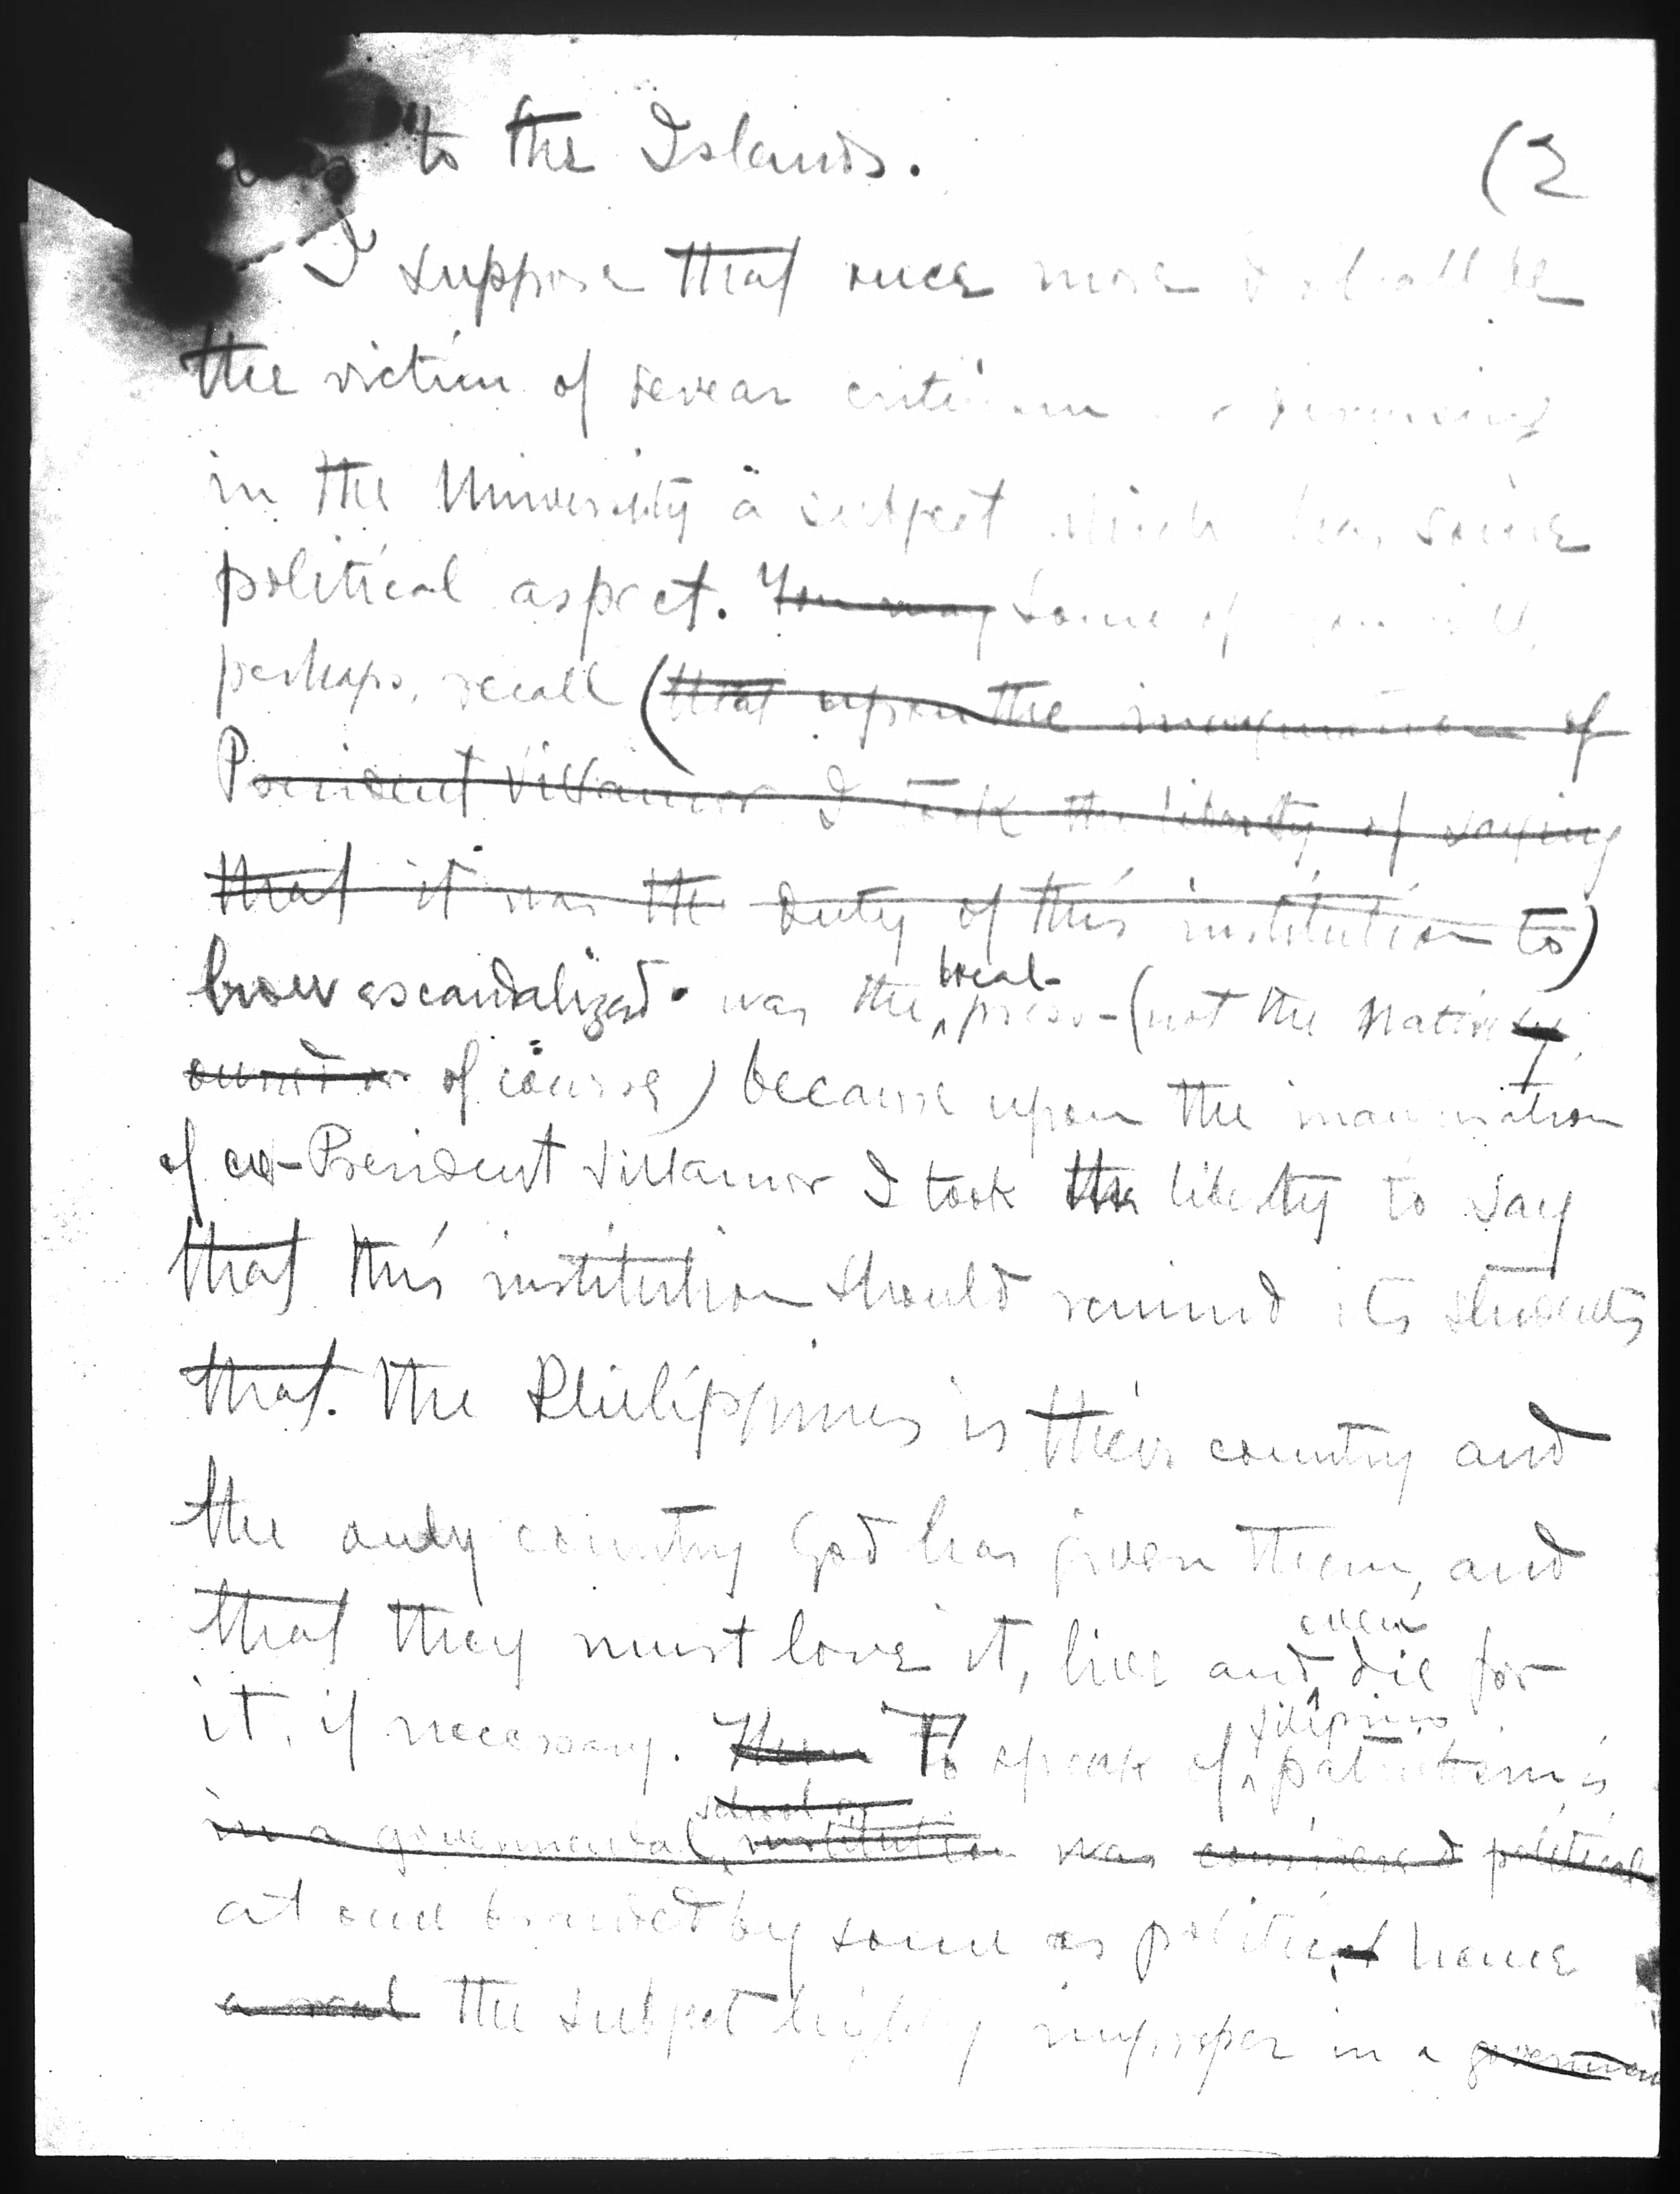 to the Islands. (2
I suppose that once more I shall be
the victim of sevear criticism
in the University a subject which has some
political aspect. You may Some of you will,
perhaps, recall (that upon the inauguration of
President Villamor I took the liberty of saying
that it was the duty of this institution to)
how scandalized was the local press - (not the native
owned of course) because upon the inauguration
of ex-President Villamor I took the liberty to say
that this institution should remind its students
that the Philippines is their country and
the only country God has given them, and
that they must love it, live and even die for
it, if necessary. To speak of Filipino patriotism is
in a governmental school or institution was considered political
at once branded by some as political hence
a real the subject highly improper in a governmen